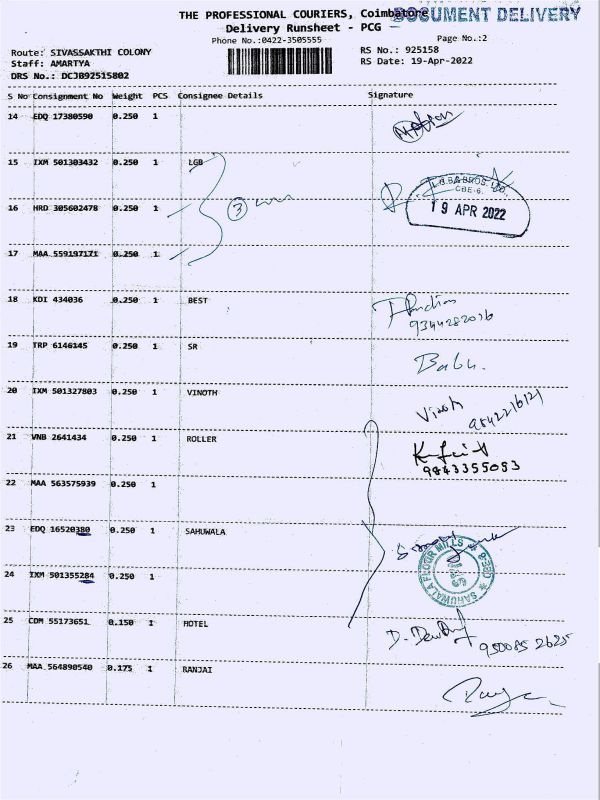 THE PROFESSIONAL COURIERS, Coimbatore
DOCUMENT DELIVERY
Delivery Runsheet - PCG
Phone No.:0422-3505555
Page No.:2
Route: SIVASSAKTHI COLONY
RS No.: 925158
Staff: AMARTYA
RS Date: 19-Apr-2022
DRS No.: DCJB92515802
S No Consignment No Weight PCS Consignee Details Signature
14 EDQ 17380590 0.250 1
15 IXM 501303432 0.250 1 LGB
L.G.B & BROS. LTD.
CBE-6.
19 APR 2022
16 HRD 305602478 0.250 1 3
17 MAA 559197171 0.250 1
18 KDI 434036 0.250 1 BEST
9344282016
19 TRP 6146145 0.250 1 SR Babu.
20 IXM 501327803 0.250 1 VINOTH Vinoth
9842216121
21 VNB 2641434 0.250 1 ROLLER
9843355053
22 MAA 563575939 0.250 1
23 EDQ 16520380 0.250 1 SAHUWALA
SAHUWALA FLOUR MILLS
24 IXM 501355284 0.250 1
25 COM 55173651 0.150 1 HOTEL
950085 2625
26 MAA 564890540 0.175 1 RANJAI